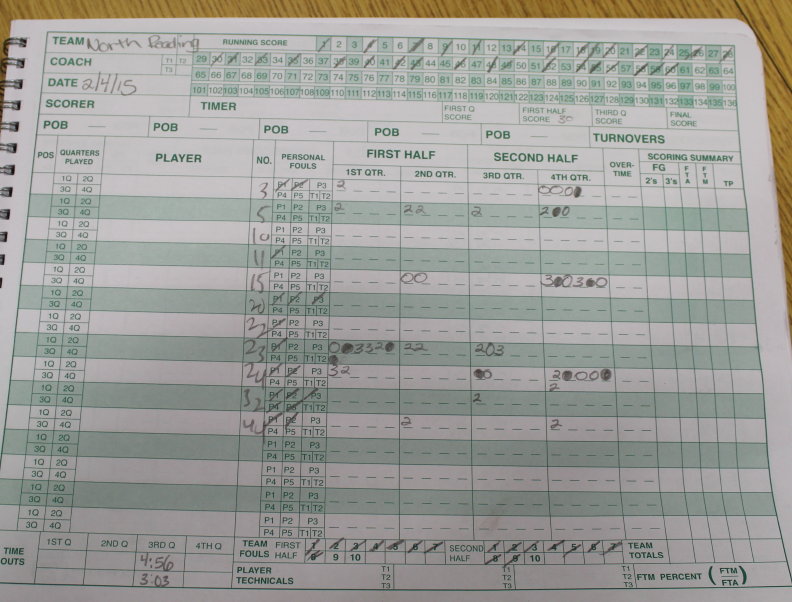 TEAM North Reading RUNNING SCORE 1 2 3 4 5 6 7 8 9 10 11 12 13 14 15 16 17 18 19 20 21 22 23 24 25 26 27 28
COACH T1 T2 T3 29 30 31 32 33 34 35 36 37 38 39 40 41 42 43 44 45 46 47 48 49 50 51 52 53 54 55 56 57 58 59 60 61 62 63 64
DATE 2/4/15 65 66 67 68 69 70 71 72 73 74 75 76 77 78 79 80 81 82 83 84 85 86 87 88 89 90 91 92 93 94 95 96 97 98 99 100
101 102 103 104 105 106 107 108 109 110 111 112 113 114 115 116 117 118 119 120 121 122 123 124 125 126 127 128 129 130 131 132 133 134 135 136
SCORER TIMER FIRST Q SCORE FIRST HALF SCORE 30 THIRD Q SCORE FINAL SCORE
POB POB POB POB POB TURNOVERS
POS QUARTERS PLAYED PLAYER NO. PERSONAL FOULS FIRST HALF SECOND HALF OVER-TIME SCORING SUMMARY
1ST QTR. 2ND QTR. 3RD QTR. 4TH QTR. FG 2's 3's FTA FTM TP
1Q 2Q 3 P1 P2 P3 2
3Q 4Q P4 P5 T1 T2 000
1Q 2Q 5 P1 P2 P3
3Q 4Q P4 P5 T1 T2 2 22 2 2 0
1Q 2Q 10 P1 P2 P3
3Q 4Q P4 P5 T1 T2
1Q 2Q 11 P1 P2 P3
3Q 4Q P4 P5 T1 T2
1Q 2Q 15 P1 P2 P3
3Q 4Q P4 P5 T1 T2 00 3 03 0
1Q 2Q 20 P1 P2 P3
3Q 4Q P4 P5 T1 T2
1Q 2Q 22 P1 P2 P3
3Q 4Q P4 P5 T1 T2
1Q 2Q 23 P1 P2 P3
3Q 4Q P4 P5 T1 T2 0 332 22 203
1Q 2Q 24 P1 P2 P3
3Q 4Q P4 P5 T1 T2 32 0 2 00
1Q 2Q 32 P1 P2 P3 2
3Q 4Q P4 P5 T1 T2 2
1Q 2Q 44 P1 P2 P3
3Q 4Q P4 P5 T1 T2 2 2
1Q 2Q P1 P2 P3
3Q 4Q P4 P5 T1 T2
1Q 2Q P1 P2 P3
3Q 4Q P4 P5 T1 T2
1Q 2Q P1 P2 P3
3Q 4Q P4 P5 T1 T2
1Q 2Q P1 P2 P3
3Q 4Q P4 P5 T1 T2
TIME OUTS 1ST Q 2ND Q 3RD Q 4TH Q TEAM FOULS FIRST HALF 1 2 3 4 5 6 7 SECOND HALF 1 2 3 4 5 6 7 TEAM TOTALS
4:56 8 9 10 8 9 10
3:03 PLAYER TECHNICALS T1 T2 T3 T1 T2 T3 T1 T2 T3 FTM PERCENT (FTM FTA)